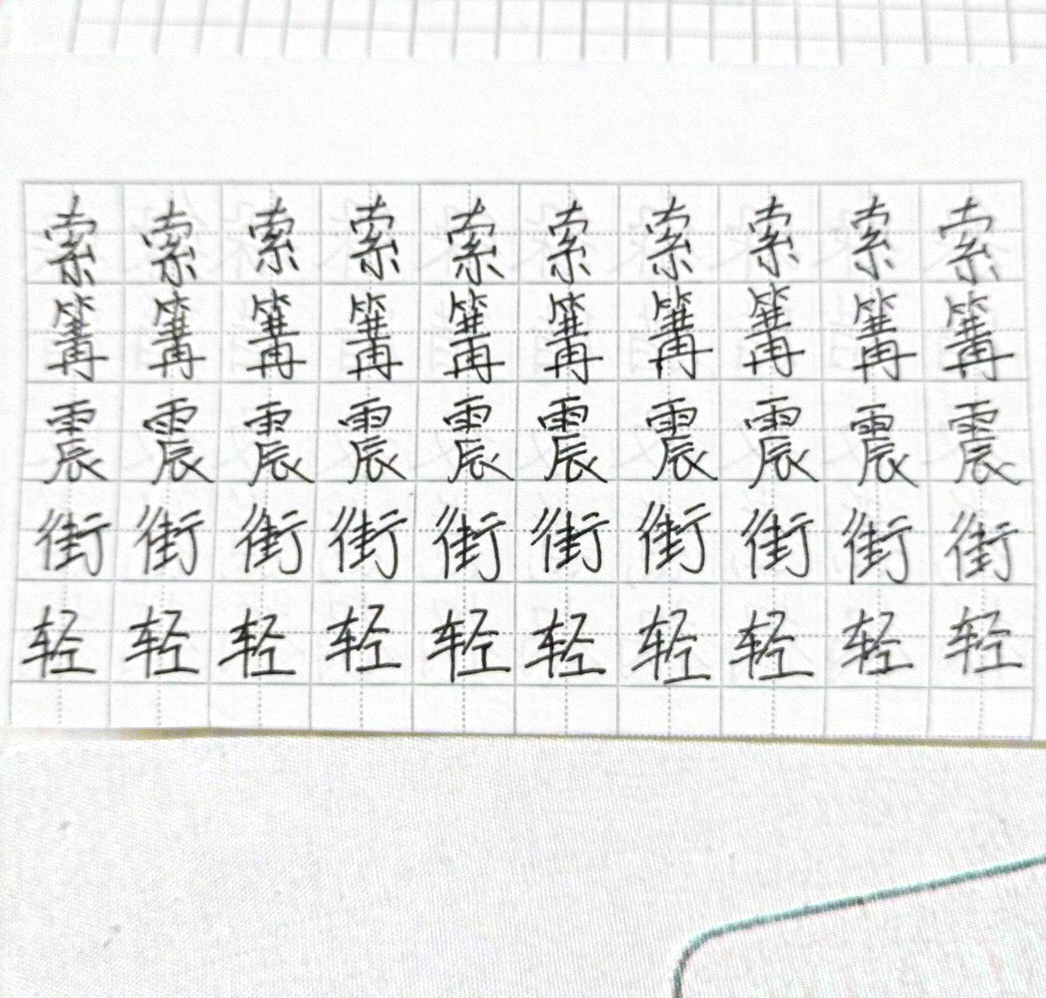 索索索索索索索索索索
篝篝篝篝篝篝篝篝篝篝
震震震震震震震震震震
街街街街街街街街街街
轻轻轻轻轻轻轻轻轻轻